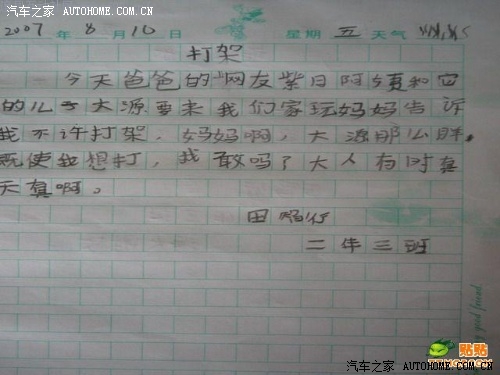 汽车之家 AUTOHOME.COM.CN
2007 年 8 月 10 日 星期 五 天气
打架
今天爸爸的网友紫日阿姨和它
的儿子大源要来我们家玩妈妈告诉
我不许打架，妈妈啊，大源那么胖，
既使我想打，我敢吗？大人有时真
天真啊。
田 行
二年三班
good friend
贴贴
汽车之家 AUTOHOME.COM.CN